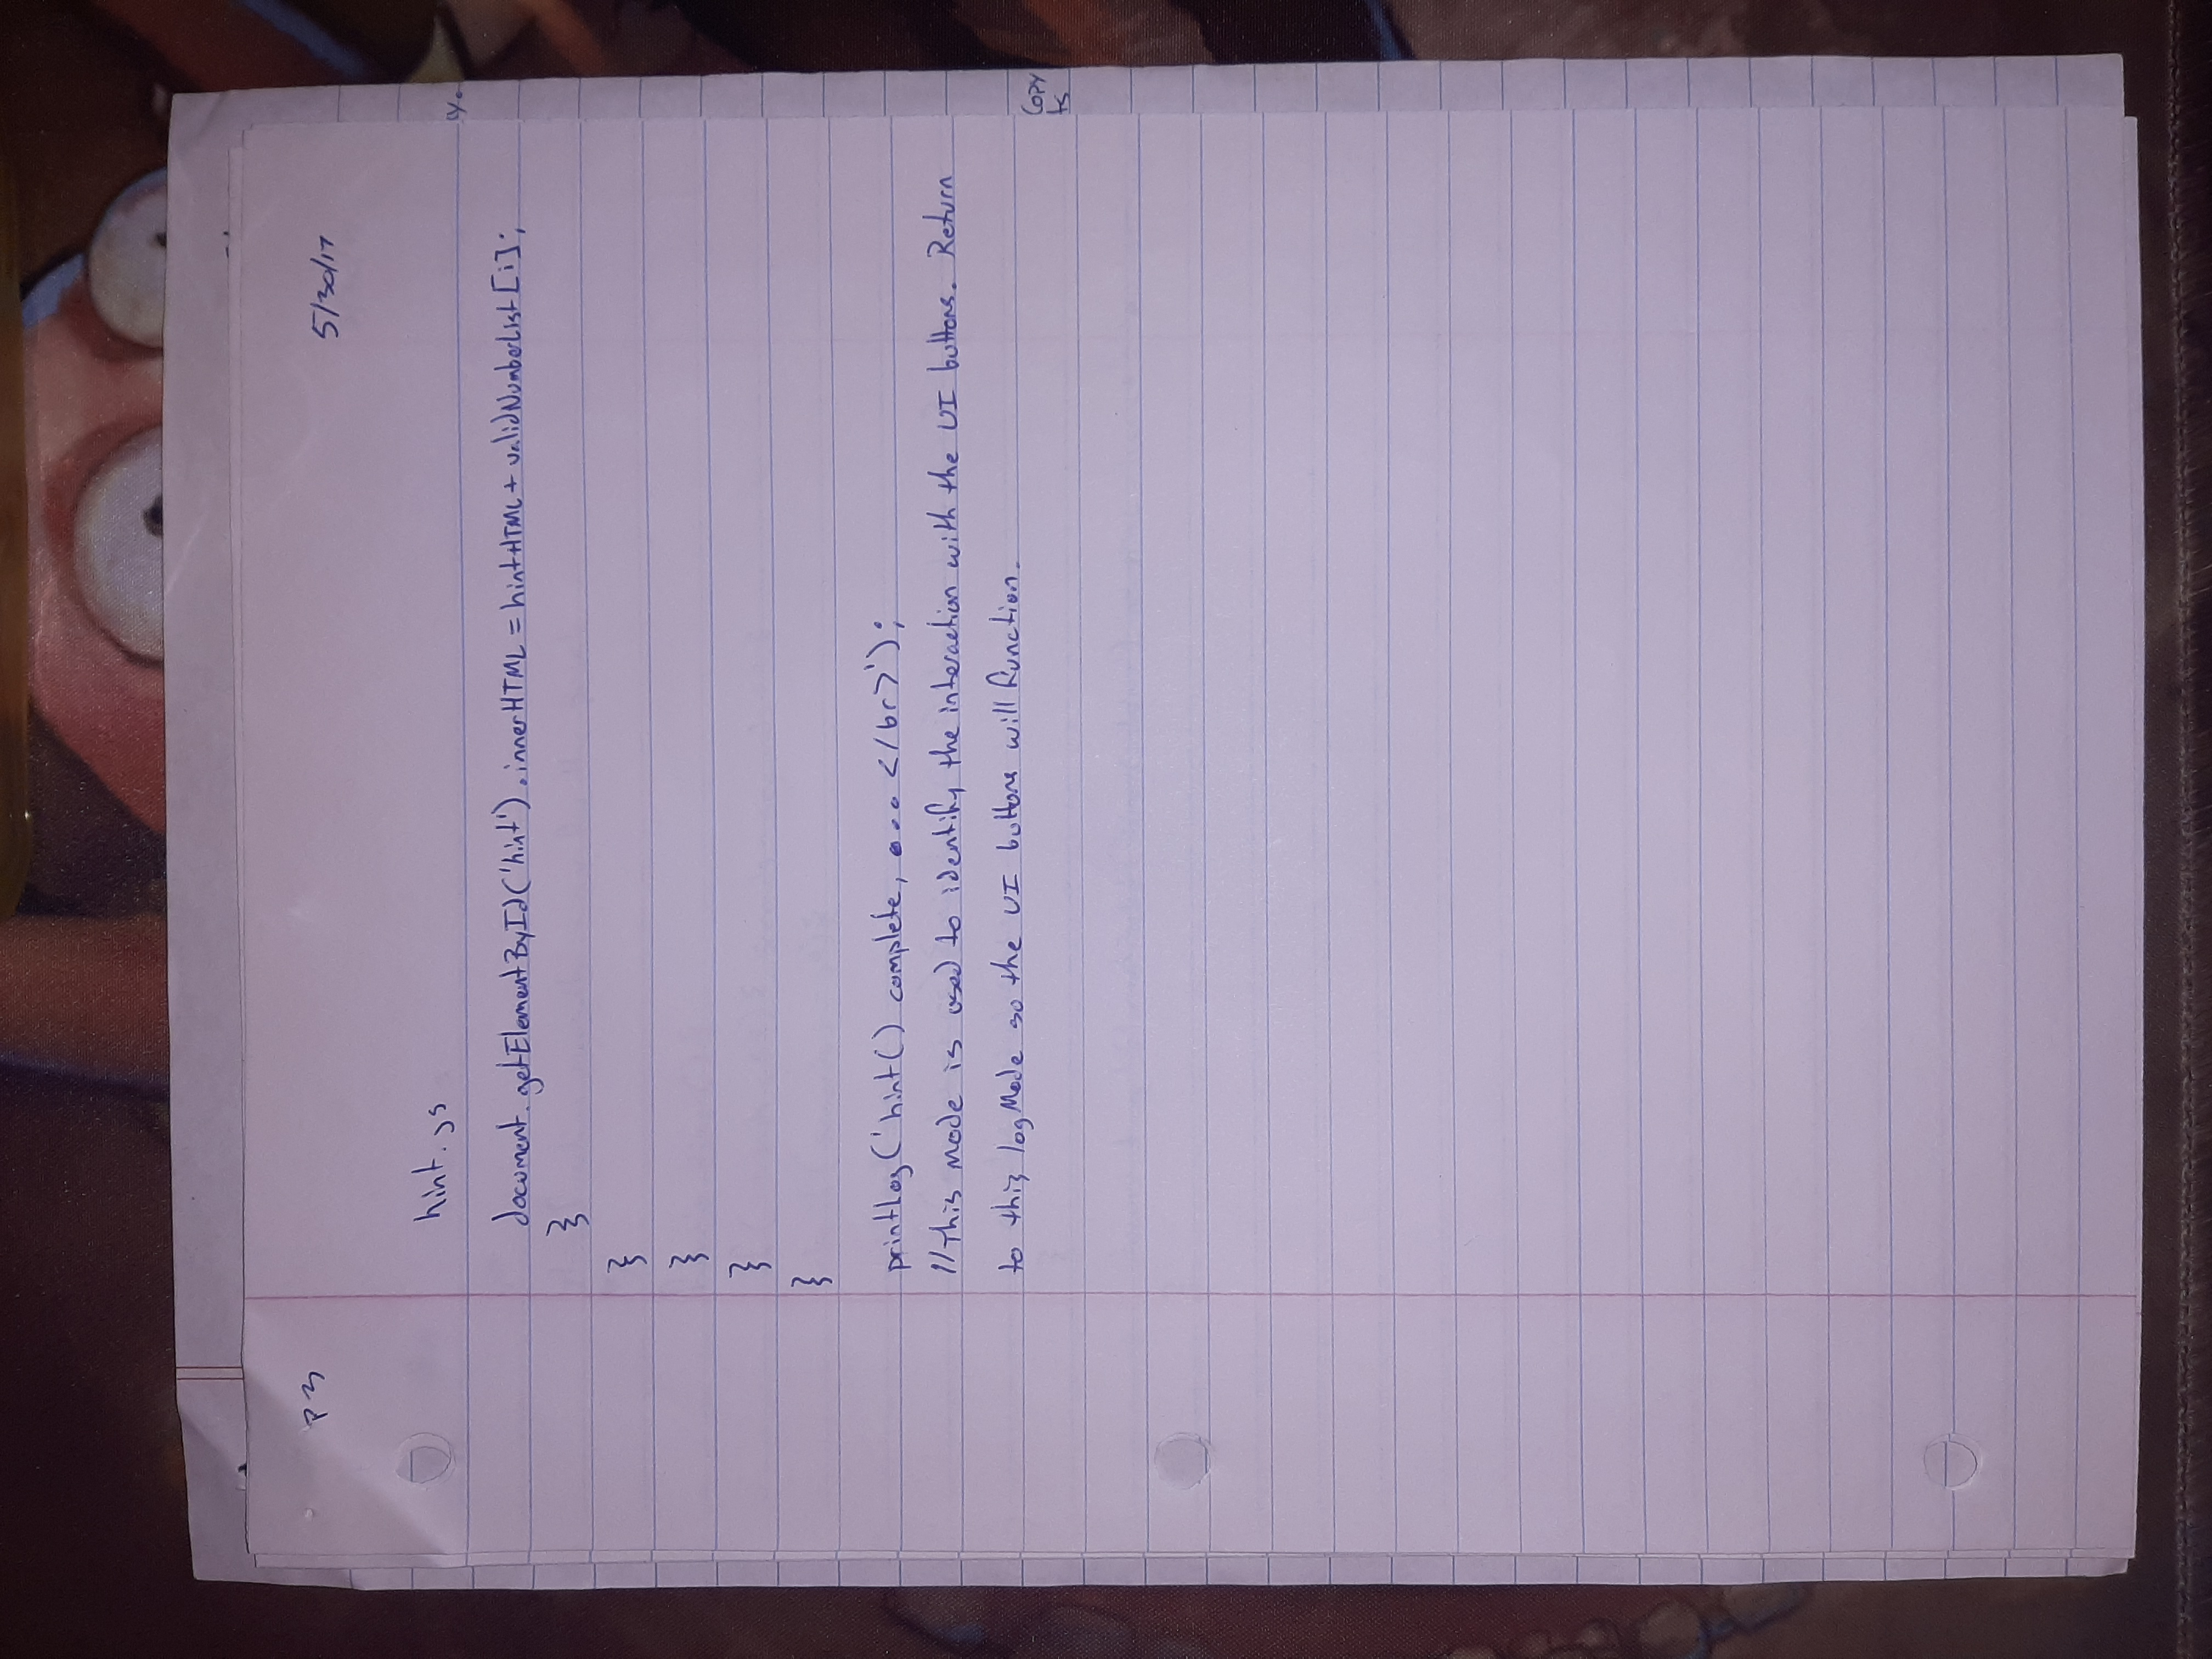 P3
5/30/17
hint.js
document.getElementById('hint').innerHTML = hintHTML + validNumberList[i];
}
}
}
}
}
printLog('hint() complete, ... </br>');
//This mode is used to identify the interaction with the UI buttons. Return
to this logMode so the UI buttons will function.
y.
Copy
ts